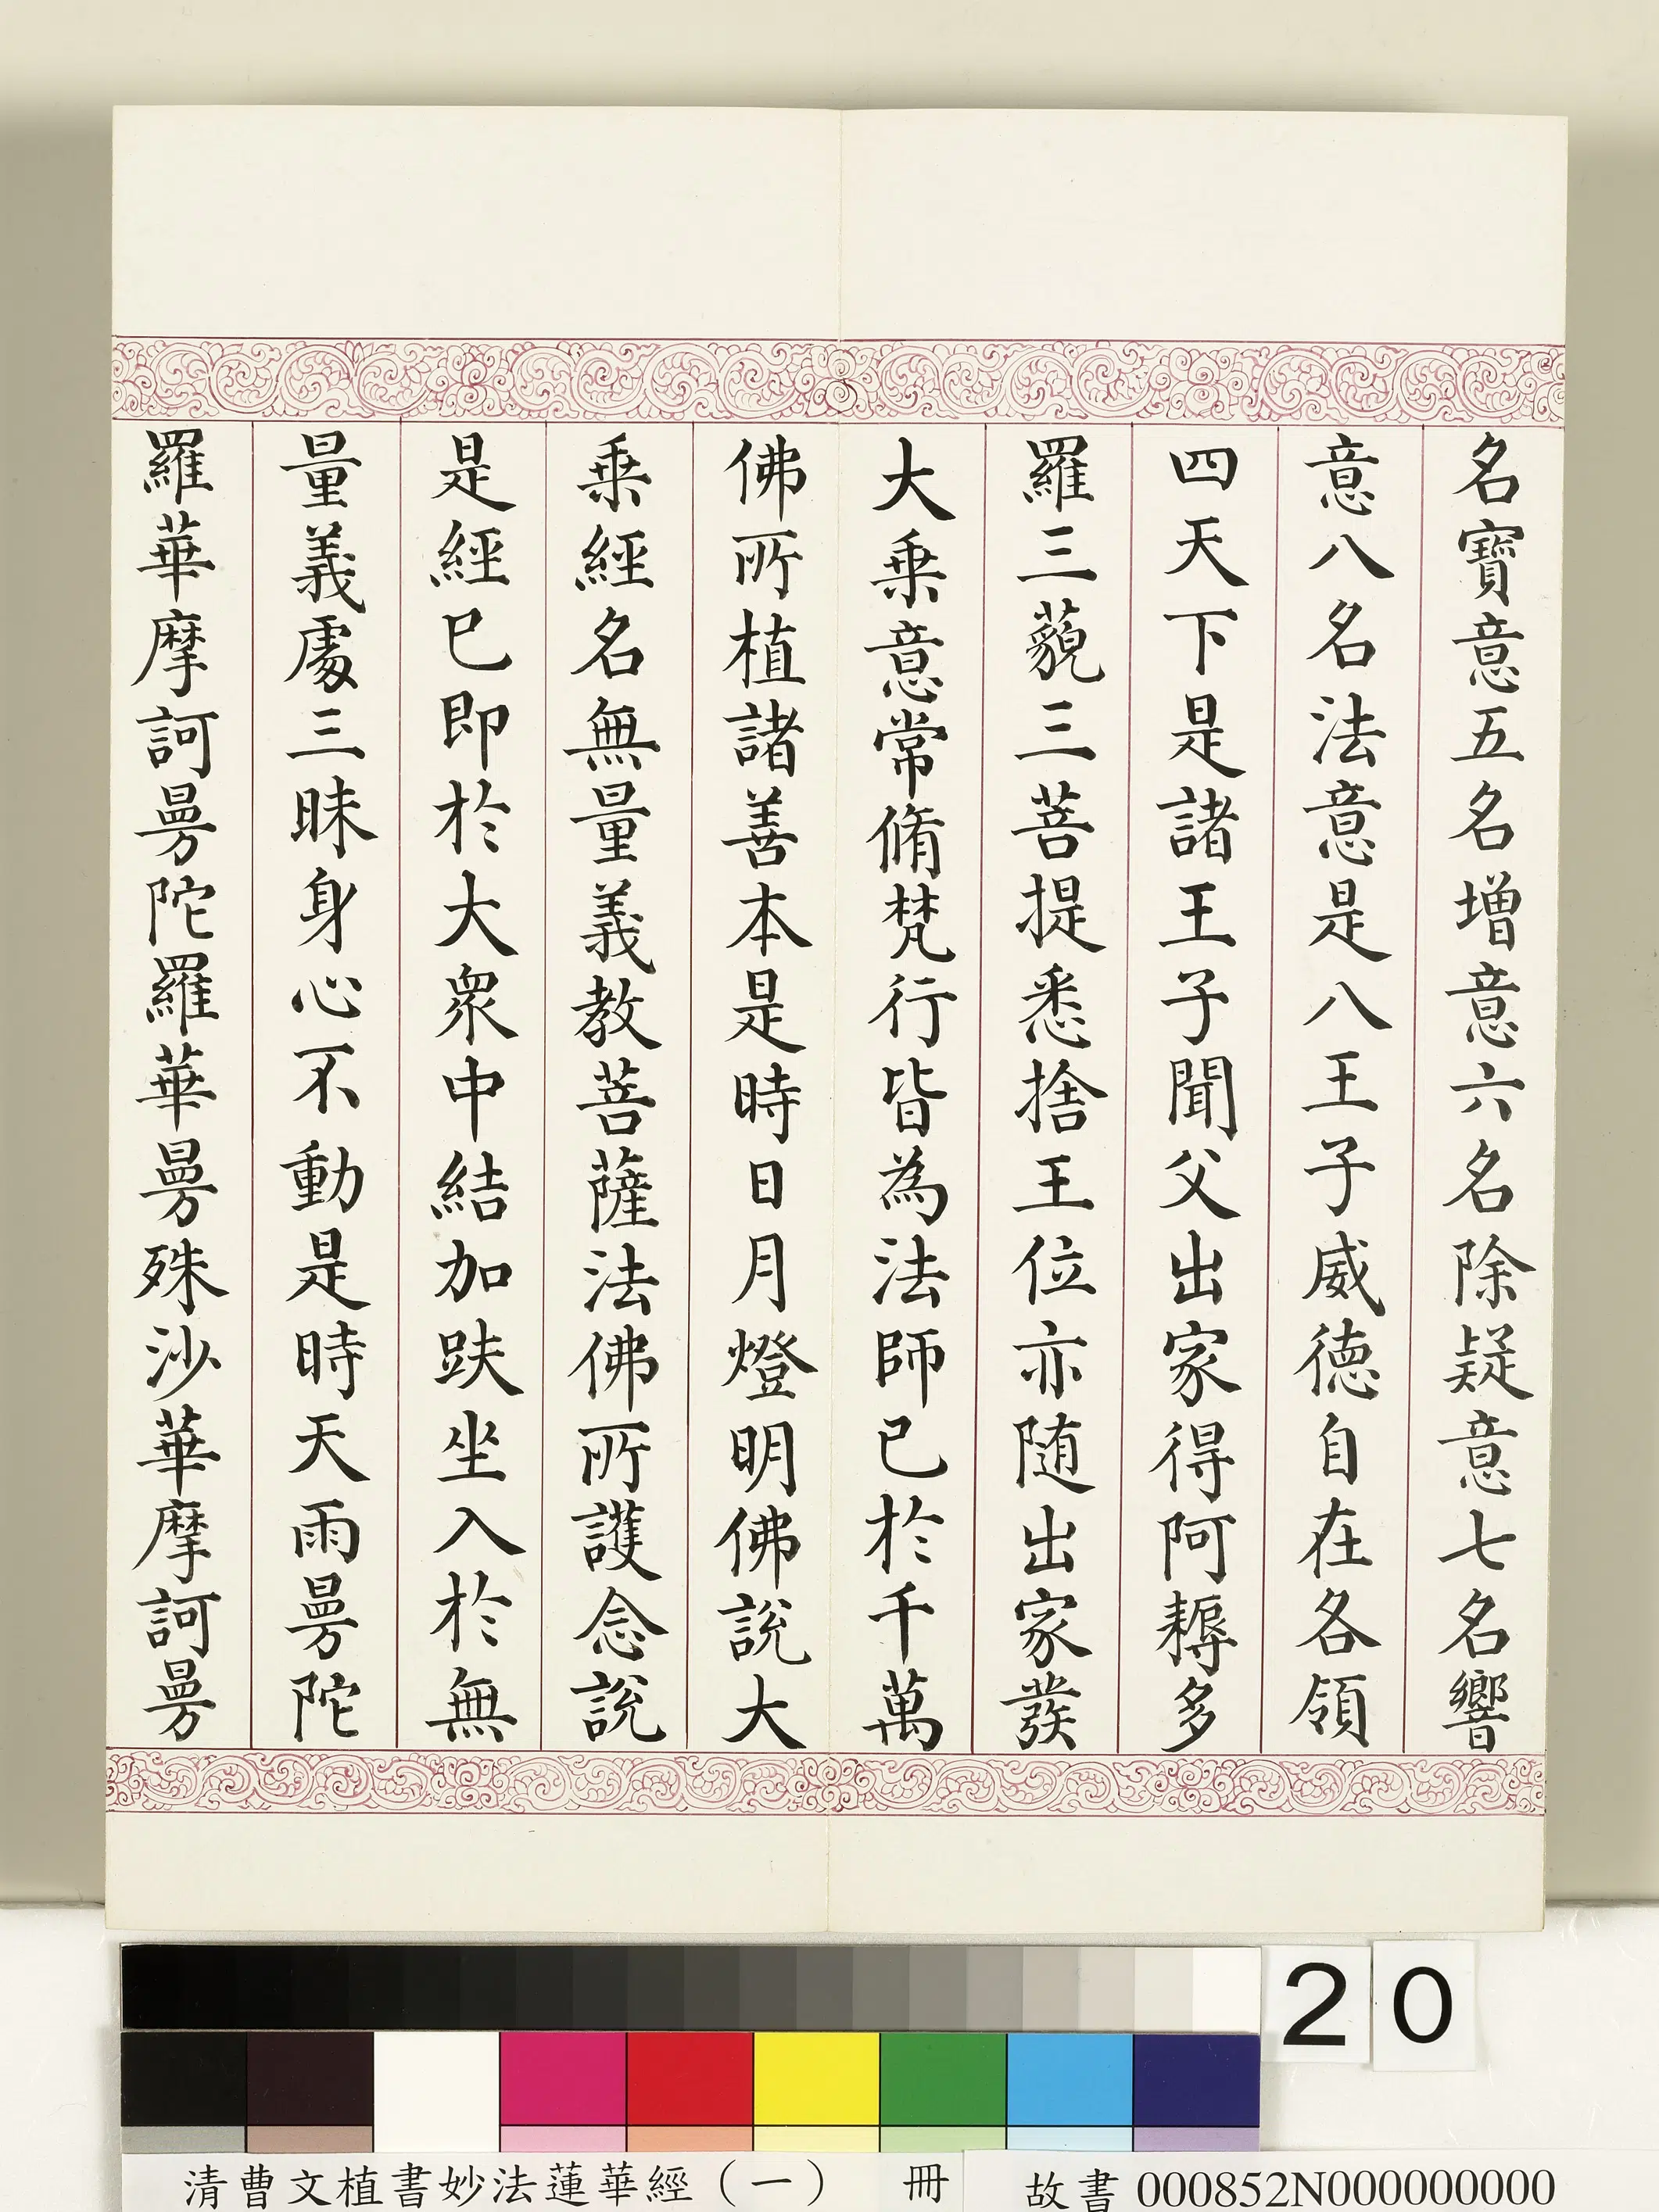 名寶意五名增意六名除疑意七名響
意八名法意是八王子威德自在各領
四天下是諸王子聞父出家得阿耨多
羅三藐三菩提悉捨王位亦隨出家發
大乗意常脩梵行皆為法師已於千萬
佛所植諸善本是時日月燈明佛說大
乗經名無量義教菩薩法佛所護念說
是經已即於大衆中結加趺坐入於無
量義處三昧身心不動是時天雨曼陀
羅華摩訶曼陀羅華曼殊沙華摩訶曼
20
清曹文植書妙法蓮華經（一） 冊 故書000852N000000000